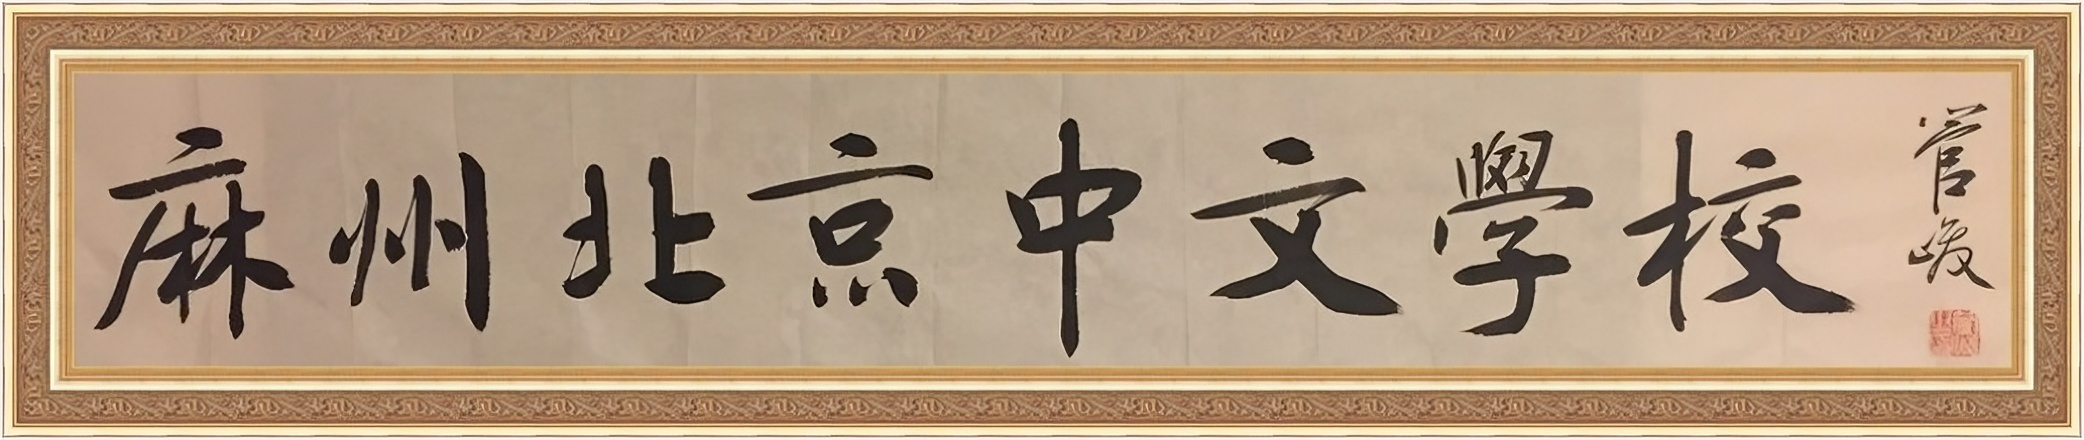 麻州北京中文學校
管峻